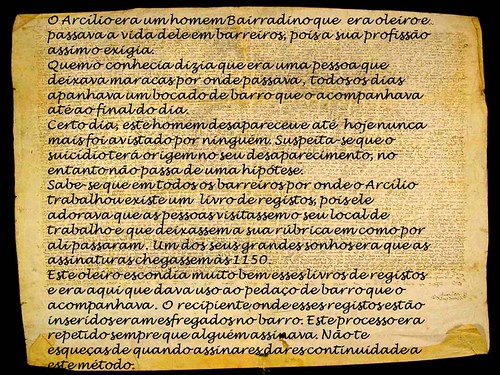 O Arcílio era um homem Bairradino que era oleiro e
passava a vida dele em barreiros, pois a sua profissão
assim o exigia.
Quem o conhecia dizia que era uma pessoa que
deixava maracas por onde passava, todos os dias
apanhava um bocado de barro que o acompanhava
até ao final do dia.
Certo dia, este homem desapareceu e até hoje nunca
mais foi avistado por ninguém. Suspeita-se que o
suicídio terá origem no seu desaparecimento, no
entanto não passa de uma hipótese.
Sabe-se que em todos os barreiros por onde o Arcílio
trabalhou existe um livro de registos, pois ele
adorava que as pessoas visitassem o seu local de
trabalho e que deixassem a sua rúbrica em como por
ali passaram. Um dos seus grandes sonhos era que as
assinaturas chegassem às 1150.
Este oleiro escondia muito bem esses livros de registos
e era aqui que dava uso ao pedaço de barro que o
acompanhava. O recipiente onde esses registos estão
inseridos eram esfregados no barro. Este processo era
repetido sempre que alguém assinava. Não te
esqueças de quando assinares, dares continuidade a
este método.